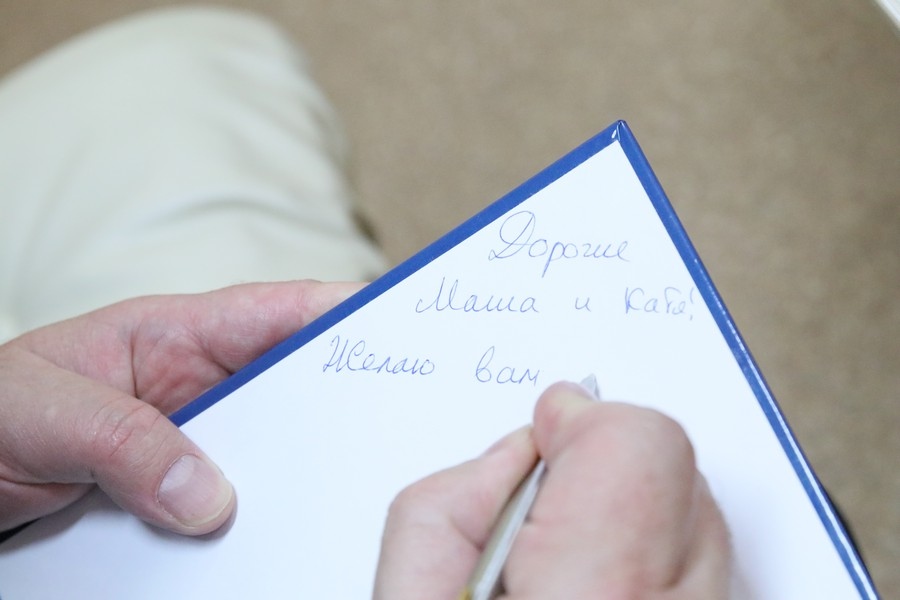 Дорогие
Маша и Катя!
Желаю вам